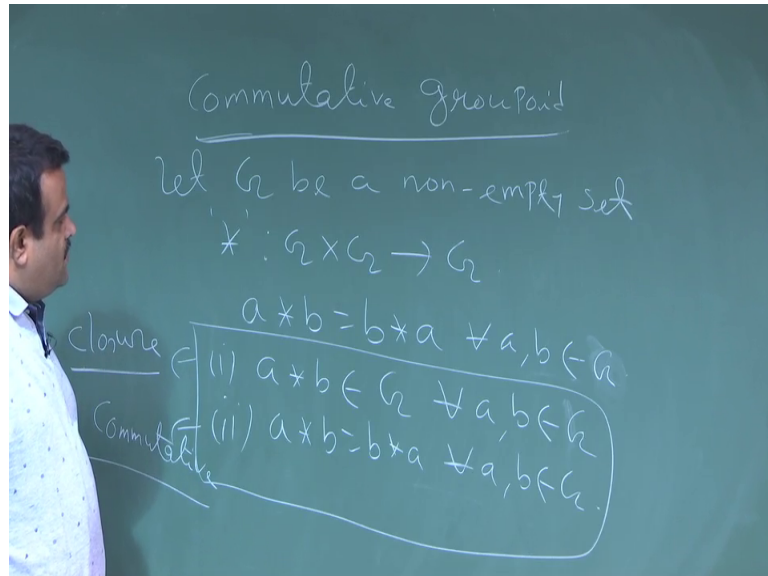 Commutative groupoid
Let G be a non-empty set
'*' : G × G → G.
a * b = b * a ∀ a, b ∈ G
closure ← (i) a * b ∈ G ∀ a, b ∈ G
Commutative ← (ii) a * b = b * a ∀ a, b ∈ G.